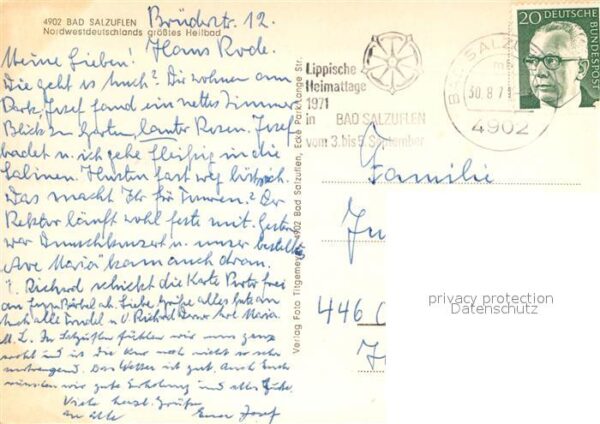 4902 BAD SALZUFLEN
Nordwestdeutschlands größtes Heilbad
Brüderstr. 12.
Meine Lieben! Haus Rode.
Wie geht es Euch? Wir wohnen am
Park, Josef fand ein nettes Zimmer
Blick z. Garten, lauter Rosen. Josef
badet u. ich gehe fleißig in die
Salinen. Husten fast weg
Das macht Ihr für Touren? Der
Rektor läuft wohl feste mit. Gestern
war Wunschkonzert u. unser bestelltes
"Ave Maria" kam auch dran.
Richard schickt die Karte Porto frei
an Liebe Grüße alles Gute an
Euch alle Eure Maria.
M. L. In Salzuflen fühlen wir uns ganz
wohl und ist die Kur noch nicht so sehr
anstrengend. Das Wetter ist gut. Auch Euch
wünschen wir gute Erholung und alles Gute.
Viele herzl. Grüße
an alle Euer Josef
Verlag Foto Titgemeyer, 4902 Bad Salzuflen, Ecke Park/Lange Str.
Lippische
Heimattage
1971
in BAD SALZUFLEN
vom 3. bis 5. September
BAD SALZUFLEN
30.8.7
4902
20 DEUTSCHE
BUNDESPOST
Familie
446
privacy protection
Datenschutz